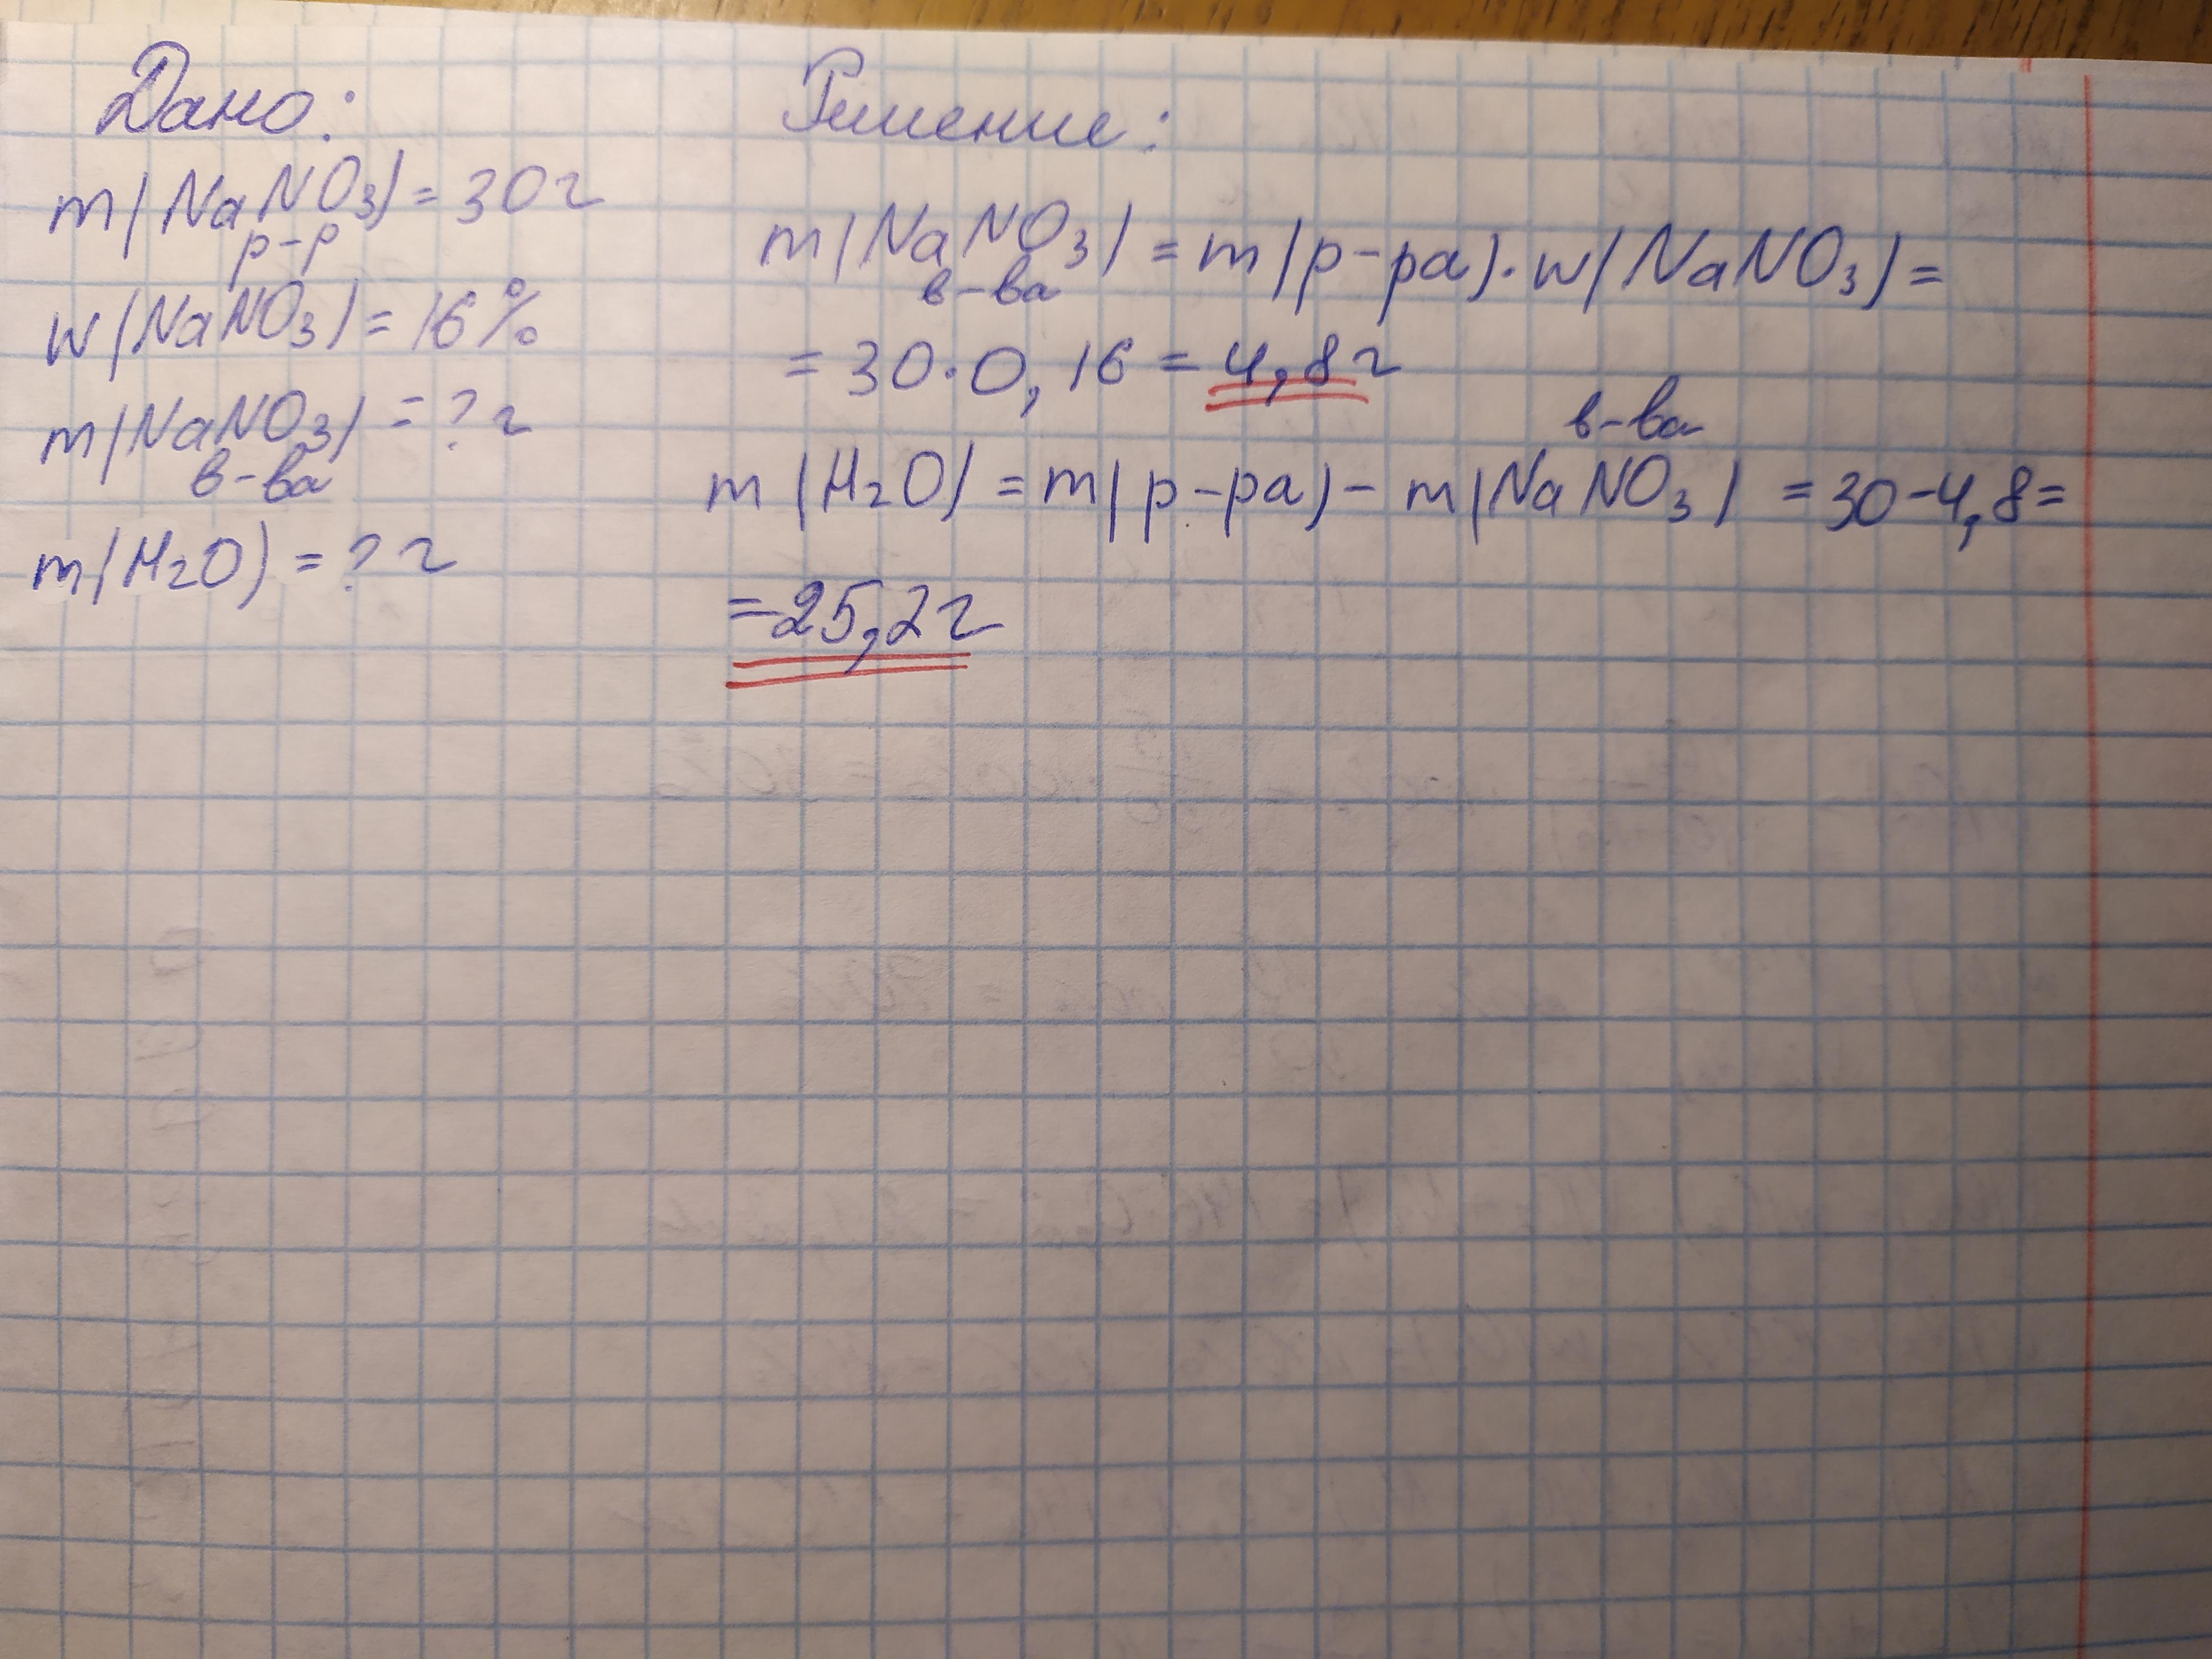 Дано:
m(NaNO3) = 30 г
р-р
w(NaNO3) = 16%
m(NaNO3) = ? г
в-ва
m(H2O) = ? г
Решение:
m(NaNO3) = m(р-ра)·w(NaNO3) =
в-ва
= 30·0,16 = 4,8 г
в-ва
m(H2O) = m(р-ра) - m(NaNO3) = 30-4,8=
= 25,2 г